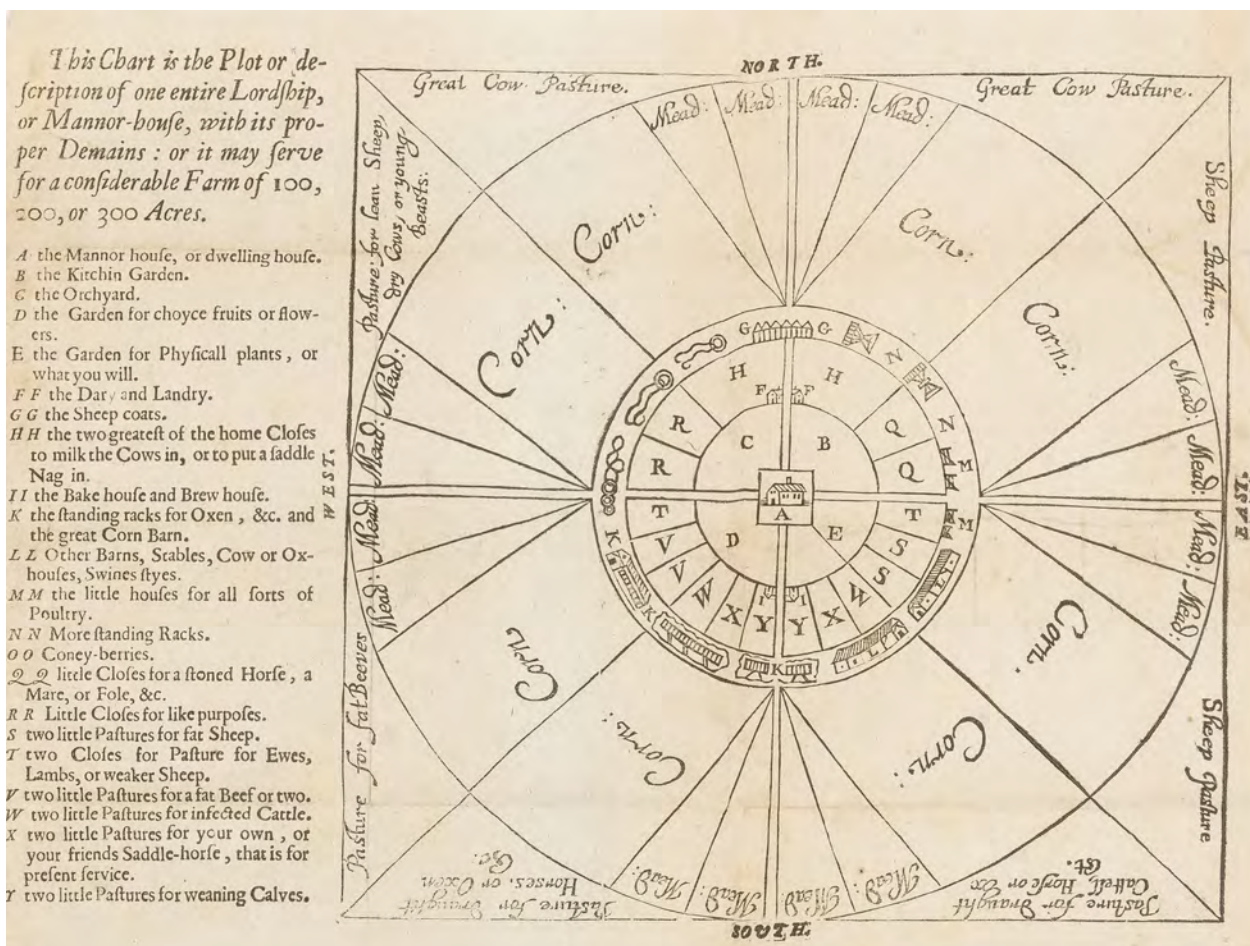 This Chart is the Plot or de-
ſcription of one entire Lordſhip,
or Mannor-houſe, with its pro-
per Demains : or it may ſerve
for a conſiderable Farm of 100,
200, or 300 Acres.
A the Mannor houſe, or dwelling houſe.
B the Kitchin Garden.
C the Orchyard.
D the Garden for choyce fruits or flow-
ers.
E the Garden for Phyſicall plants, or
what you will.
F F the Dary and Landry.
G G the Sheep coats.
H H the two greateſt of the home Cloſes
to milk the Cows in, or to put a ſaddle
Nag in.
I I the Bake houſe and Brew houſe.
K the ſtanding racks for Oxen, &c. and
the great Corn Barn.
L L Other Barns, Stables, Cow or Ox-
houſes, Swines ſtyes.
M M the little houſes for all ſorts of
Poultry.
N N More ſtanding Racks.
O O Coney-berries.
Q Q little Cloſes for a ſtoned Horſe, a
Mare, or Fole, &c.
R R Little Cloſes for like purpoſes.
S two little Paſtures for fat Sheep.
T two Cloſes for Paſture for Ewes,
Lambs, or weaker Sheep.
V two little Paſtures for a fat Beef or two.
W two little Paſtures for infected Cattle.
X two little Paſtures for your own, or
your friends Saddle-horſe, that is for
preſent ſervice.
Y two little Paſtures for weaning Calves.
NORTH.
Great Cow Paſture.
Great Cow Paſture.
Mead:
Mead:
Mead:
Mead:
Paſture for lean Sheep,
dry Cows, or young
Beaſts:
Sheep Paſture.
Corn:
Corn:
Corn:
Corn:
G G
N
H H
F F
N
R C B Q
R Q M
Mead:
Mead:
Mead:
Mead:
WEST.
EAST.
A
Mead:
Mead:
Mead:
Mead:
T D E T M
K V S
V S L
K W W
X I I X
Y Y L
K
Corn
Corn:
Corn:
Corn:
Paſture for fat Beeves
Sheep Paſture
Mead:
Mead:
Mead:
Mead:
Paſture for Draught
Horses. or Oxen
&c.
Paſture for Draught
Cattell, Horſe or Ox
&c.
SOUTH.